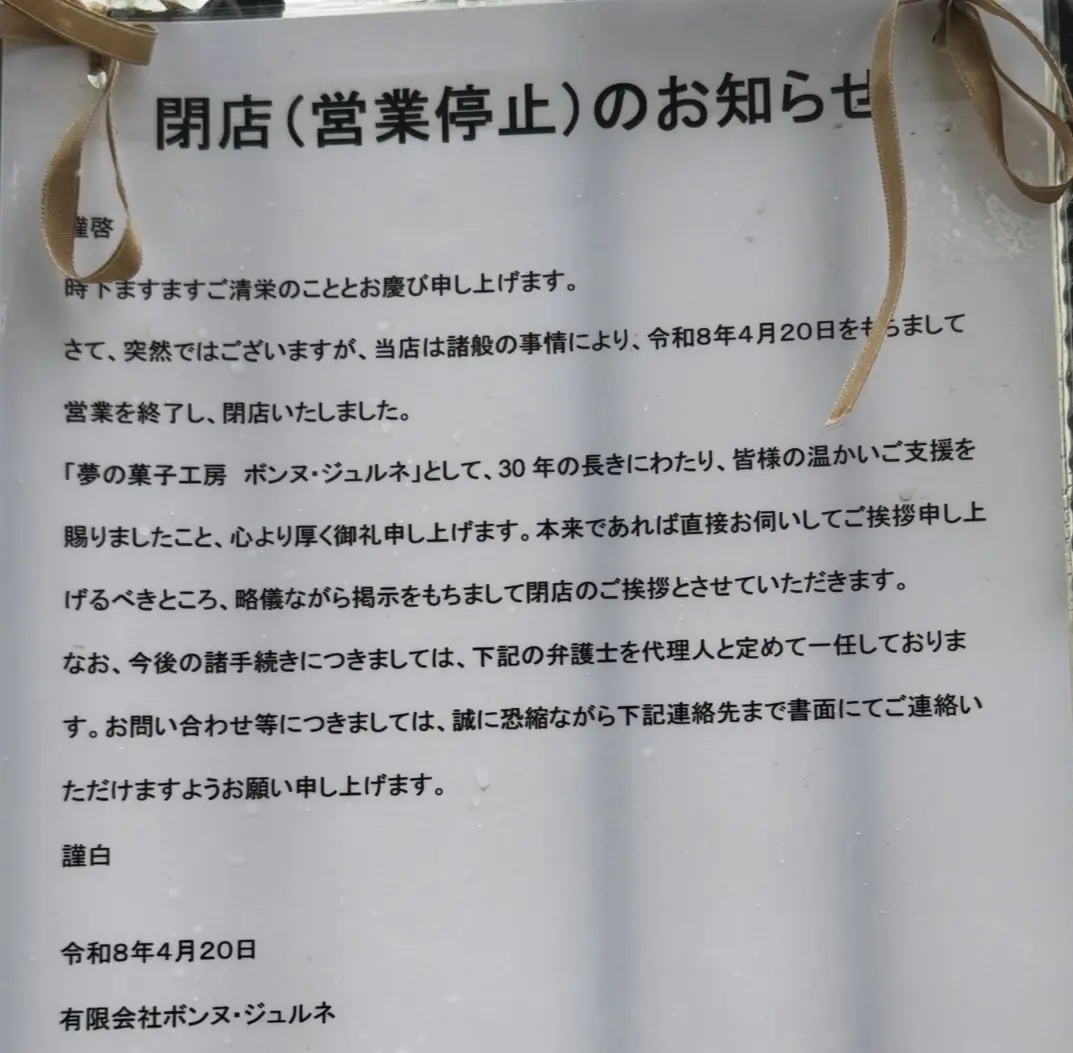 閉店(営業停止)のお知らせ
謹啓
時下ますますご清栄のこととお慶び申し上げます。
さて、突然ではございますが、当店は諸般の事情により、令和8年4月20日をもちまして
営業を終了し、閉店いたしました。
「夢の菓子工房　ボンヌ・ジュルネ」として、30 年の長きにわたり、皆様の温かいご支援を
賜りましたこと、心より厚く御礼申し上げます。本来であれば直接お伺いしてご挨拶申し上
げるべきところ、略儀ながら掲示をもちまして閉店のご挨拶とさせていただきます。
なお、今後の諸手続きにつきましては、下記の弁護士を代理人と定めて一任しておりま
す。お問い合わせ等につきましては、誠に恐縮ながら下記連絡先まで書面にてご連絡い
ただけますようお願い申し上げます。
謹白
令和8年4月20日
有限会社ボンヌ・ジュルネ